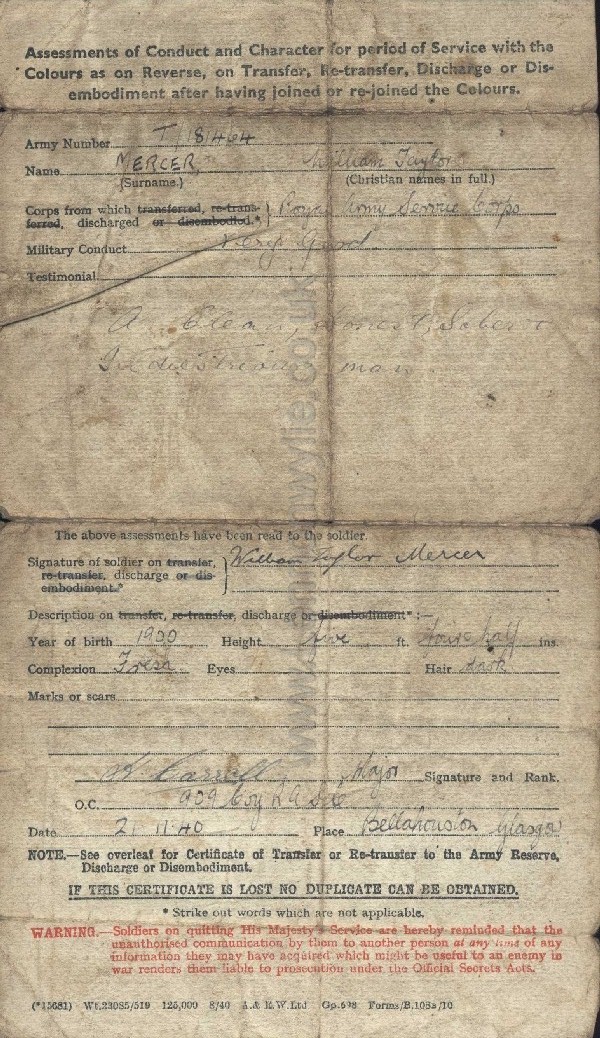 Assessments of Conduct and Character for period of Service with the
Colours as on Reverse, on Transfer, Re-transfer, Discharge or Dis-
embodiment after having joined or re-joined the Colours.
Army Number T/181464
Name MERCER, William Taylor
(Surname.) (Christian names in full.)
Corps from which transferred, re-trans-
ferred, discharged or disembodied.* Royal Army Service Corps
Military Conduct Very Good
Testimonial
A Clean, Honest, Sober &
Industrious man.
The above assessments have been read to the soldier.
Signature of soldier on transfer, William Taylor Mercer
re-transfer, discharge or dis-
embodiment.*
Description on transfer, re-transfer, discharge or disembodiment* :—
Year of birth 1900 Height five ft. four half ins.
Complexion Fresh Eyes Hair dark
Marks or scars
Major Signature and Rank.
O.C. 909 Coy R.A.S.C
Date 2. 11.40 Place Bellahouston Glasgow
NOTE.—See overleaf for Certificate of Transfer or Re-transfer to the Army Reserve,
Discharge or Disembodiment.
IF THIS CERTIFICATE IS LOST NO DUPLICATE CAN BE OBTAINED.
* Strike out words which are not applicable.
WARNING.—Soldiers on quitting His Majesty's Service are hereby reminded that the
unauthorised communication by them to another person at any time of any
information they may have acquired which might be useful to an enemy in
war renders them liable to prosecution under the Official Secrets Acts.
(*15681) Wt.23085/519 125,000 8/40 A.& E.W.Ltd Gp.698 Forms/B.108a/10